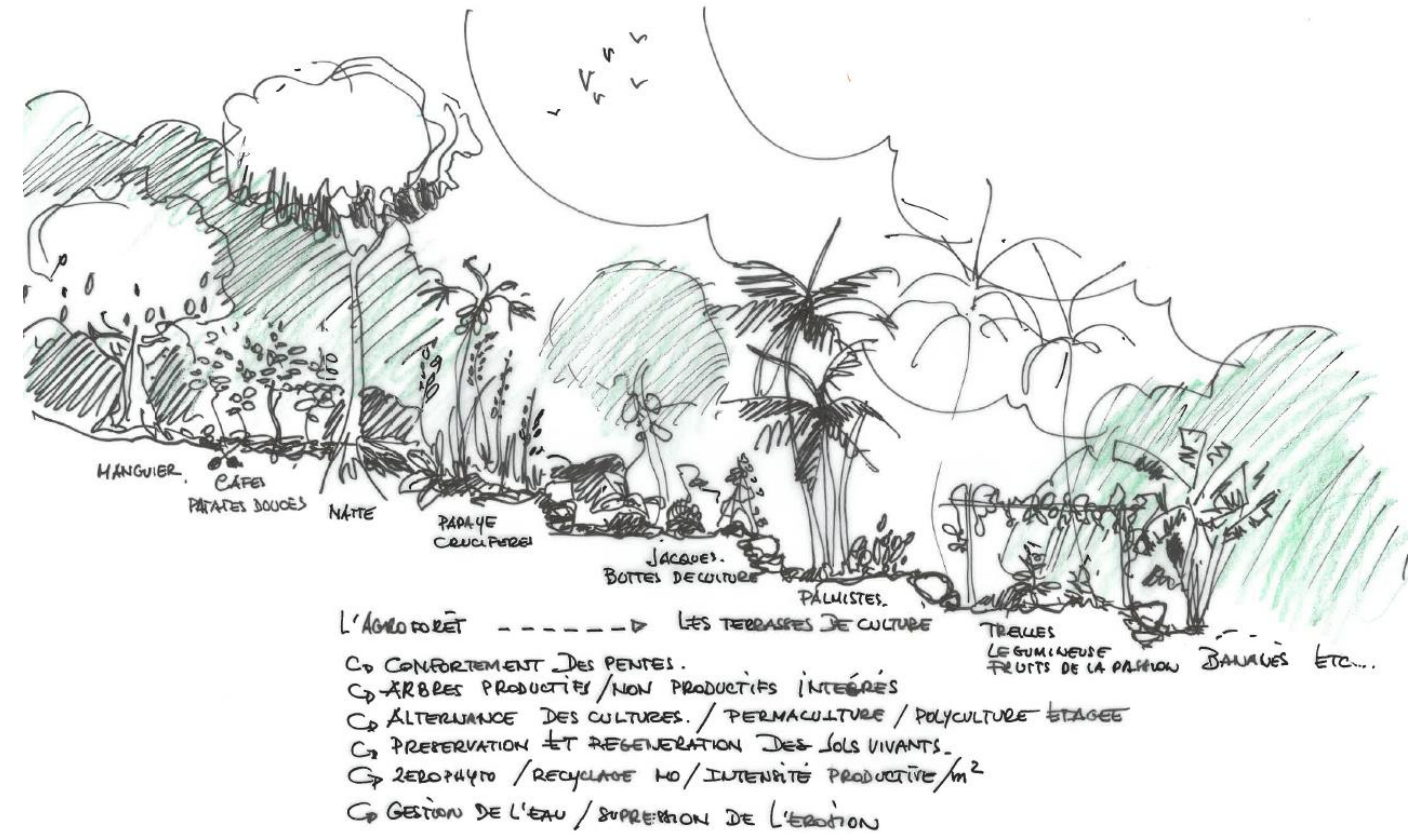 MANGUIER.
CAFES
PATATES DOUCES
NATTE
PAPAYE
CRUCIFERES
JACQUES.
BOTTES DE CULTURE
PALMISTES.
TREILLES
LEGUMINEUSE
FRUITS DE LA PASSION
BANANES ETC....
L'AGROFORÊT -------▷ LES TERRASSES DE CULTURE
CONFORTEMENT DES PENTES.
ARBRES PRODUCTIFS / NON PRODUCTIFS INTEGRÉS
ALTERNANCE DES CULTURES. / PERMACULTURE / POLYCULTURE ETAGEE
PRESERVATION ET REGENERATION DES SOLS VIVANTS.
ZEROPHYTO / RECYCLAGE MO / INTENSITÉ PRODUCTIVE/m²
GESTION DE L'EAU / SUPRESSION DE L'EROSION